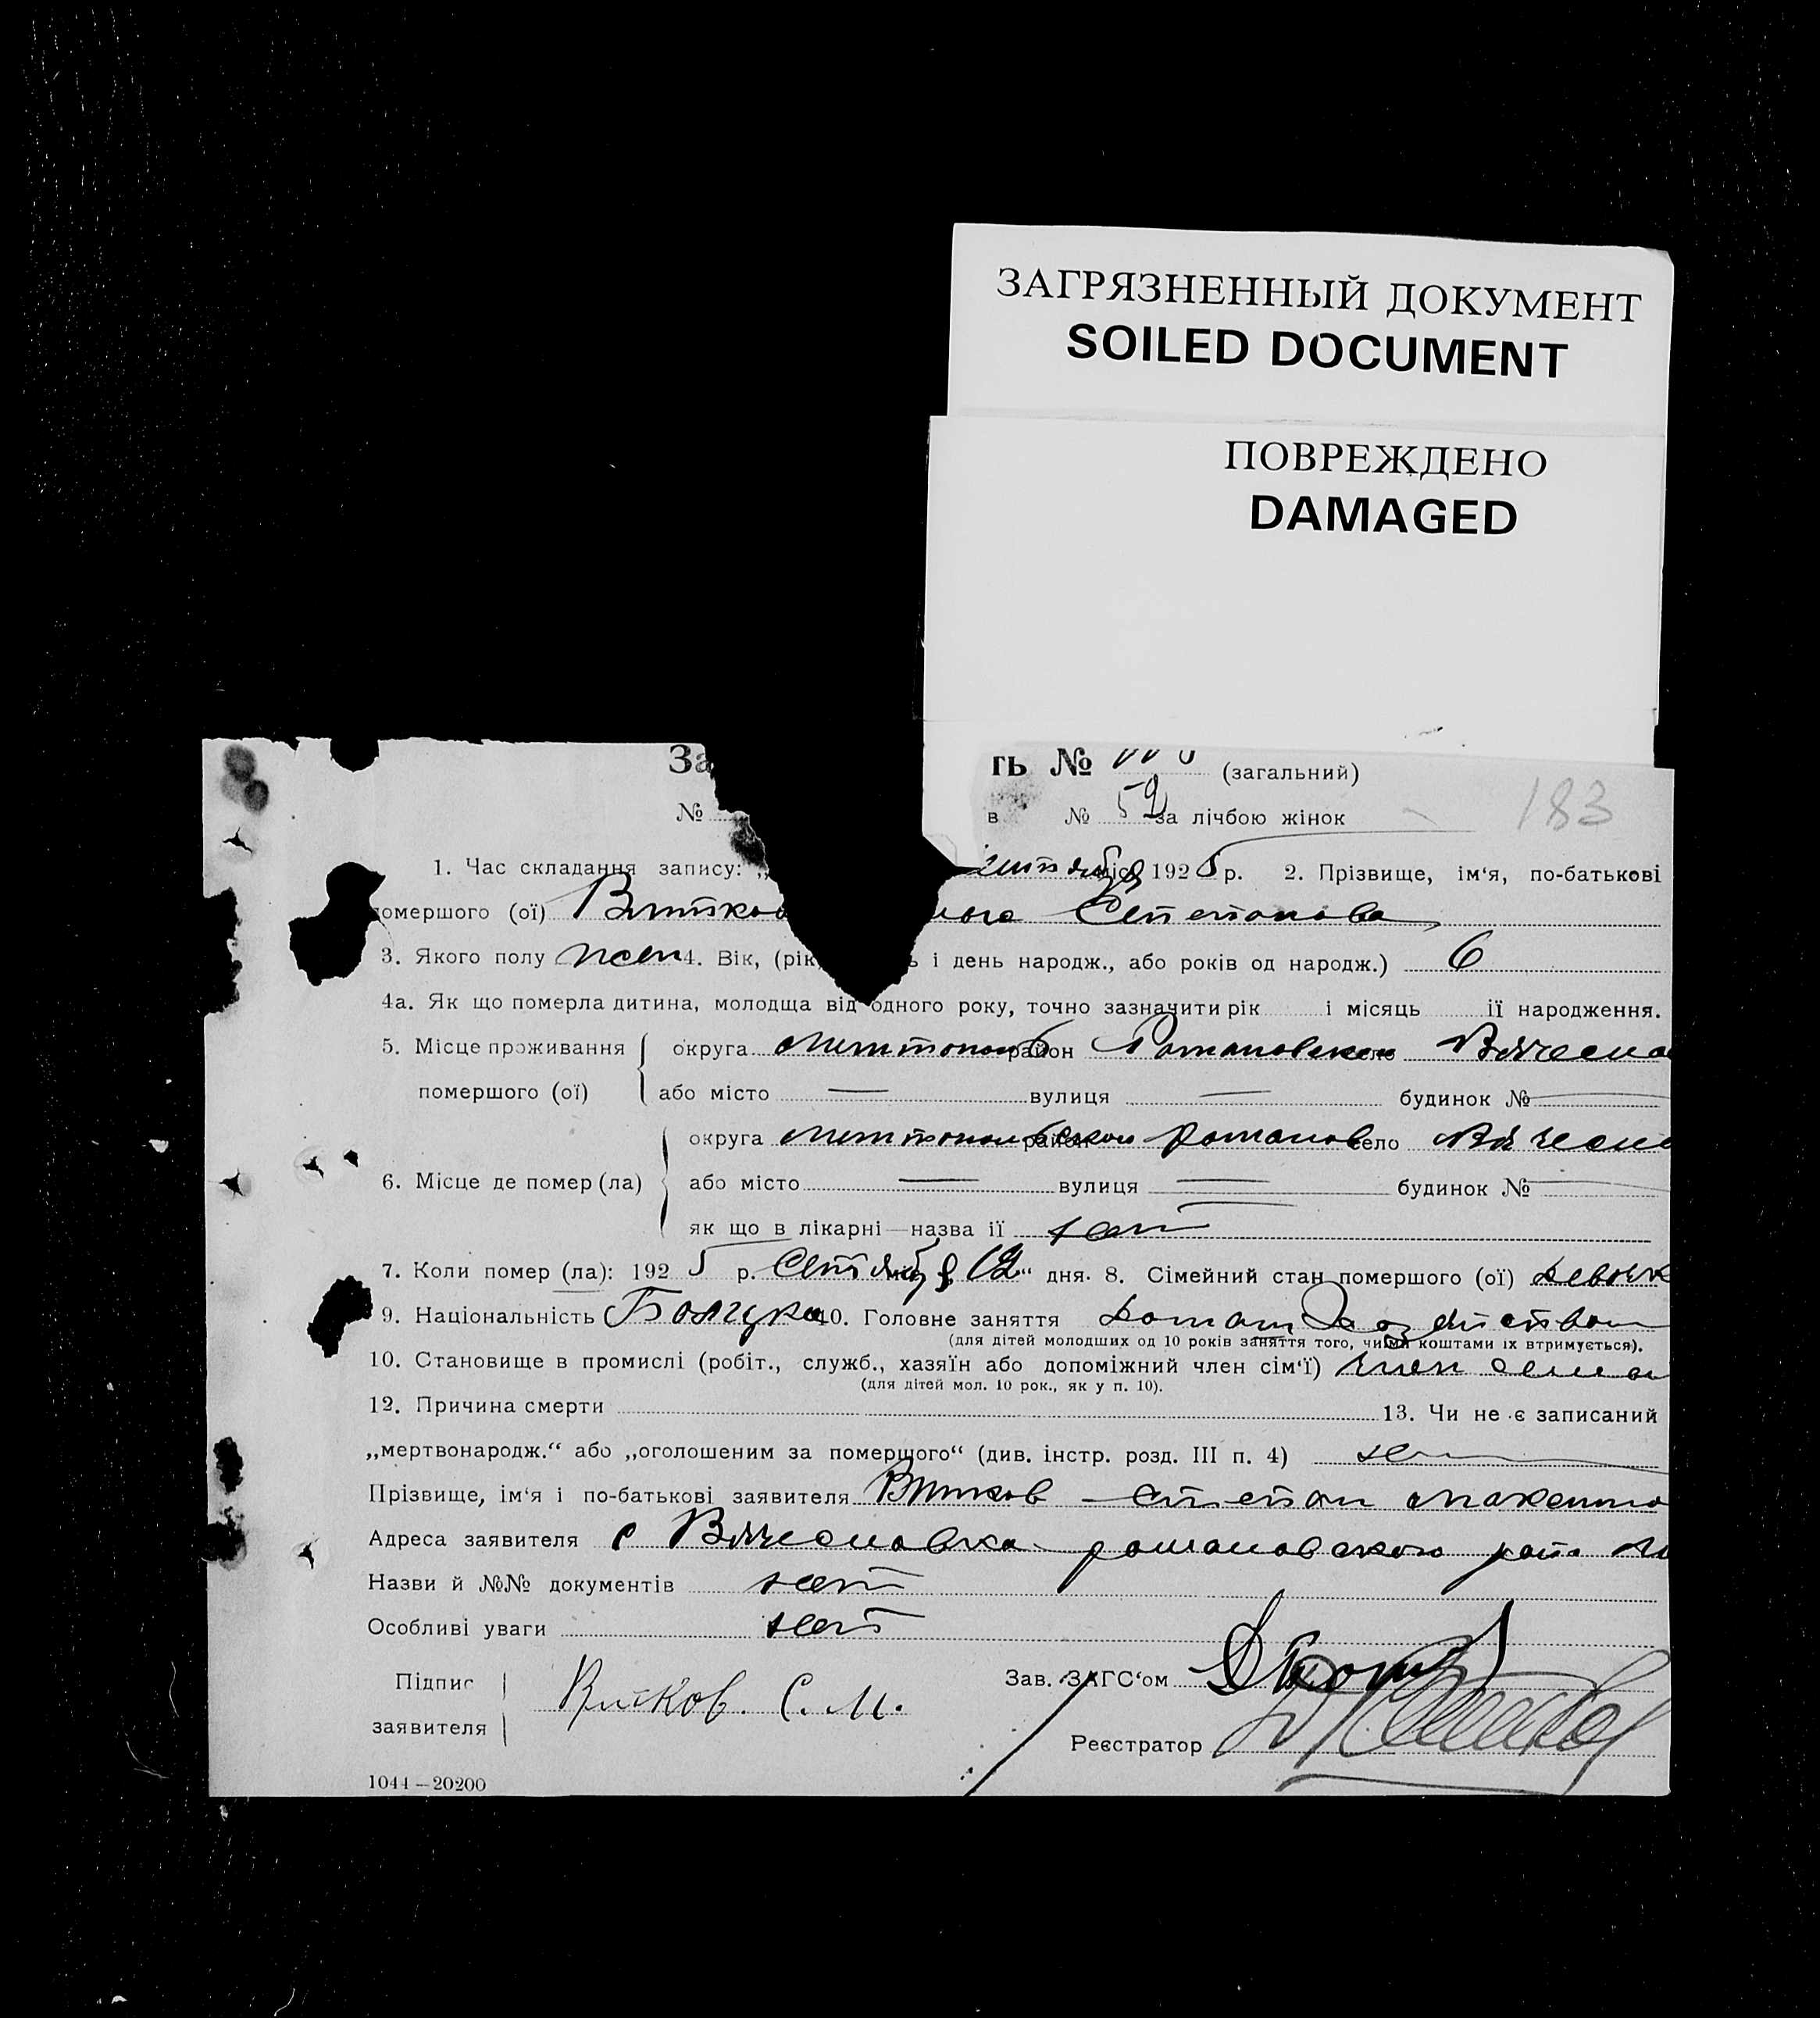 ЗАГРЯЗНЕННЫЙ ДОКУМЕНТ
SOILED DOCUMENT
ПОВРЕЖДЕНО
DAMAGED
За ть № (загальний)
№ в № 59 за лічбою жінок 183
1. Час складання запису: „ міс. 1925 р. 2. Прізвище, ім‘я, по-батькові
помершого (ої) Степанова
3. Якого полу жен 4. Вік, (рік, ь і день народж., або років од народж.) 6
4а. Як що померла дитина, молодща від одного року, точно зазначити рік і місяць її народження.
5. Місце проживання округа район Романовского Вячесла
помершого (ої) або місто — вулиця — будинок № —
округа район романов село Вячесла
6. Місце де помер (ла) або місто — вулиця — будинок № —
як що в лікарні—назва її нет
7. Коли помер (ла): 1925 р. Сентября 12“ дня. 8. Сімейний стан помершого (ої) девочк
9. Національність Болгарка 10. Головне заняття
(для дітей молодших од 10 років заняття того, чиїми коштами їх втримується).
10. Становище в промислі (робіт., служб., хазяїн або допоміжний член сім‘ї) член семи
(для дітей мол. 10 рок., як у п. 10).
12. Причина смерти 13. Чи не є записаний
„мертвонародж.“ або „оголошеним за померщого“ (див. інстр. розд. III п. 4) нет
Прізвище, ім‘я і по-батькові заявителя Степан
Адреса заявителя с Вячеславка романовского
Назви й №№ документів нет
Особливі уваги нет
Підпис Зав. ЗАГС‘ом
заявителя С. М.
Реєстратор
1044—20200